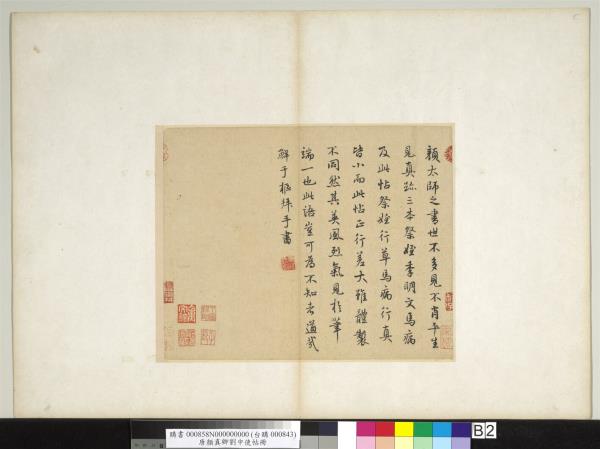 顏太師之書世不多見不肖平生
見真跡三本祭姪季明文馬病
及此帖祭姪行草馬病行真
皆小而此帖正行差大雖體製
不同然其英風烈氣見於筆
端一也此語豈可為不知者道哉
鮮于樞拜手書
購書 000858N000000000 (台購 000843)
唐顏真卿劉中使帖
B2